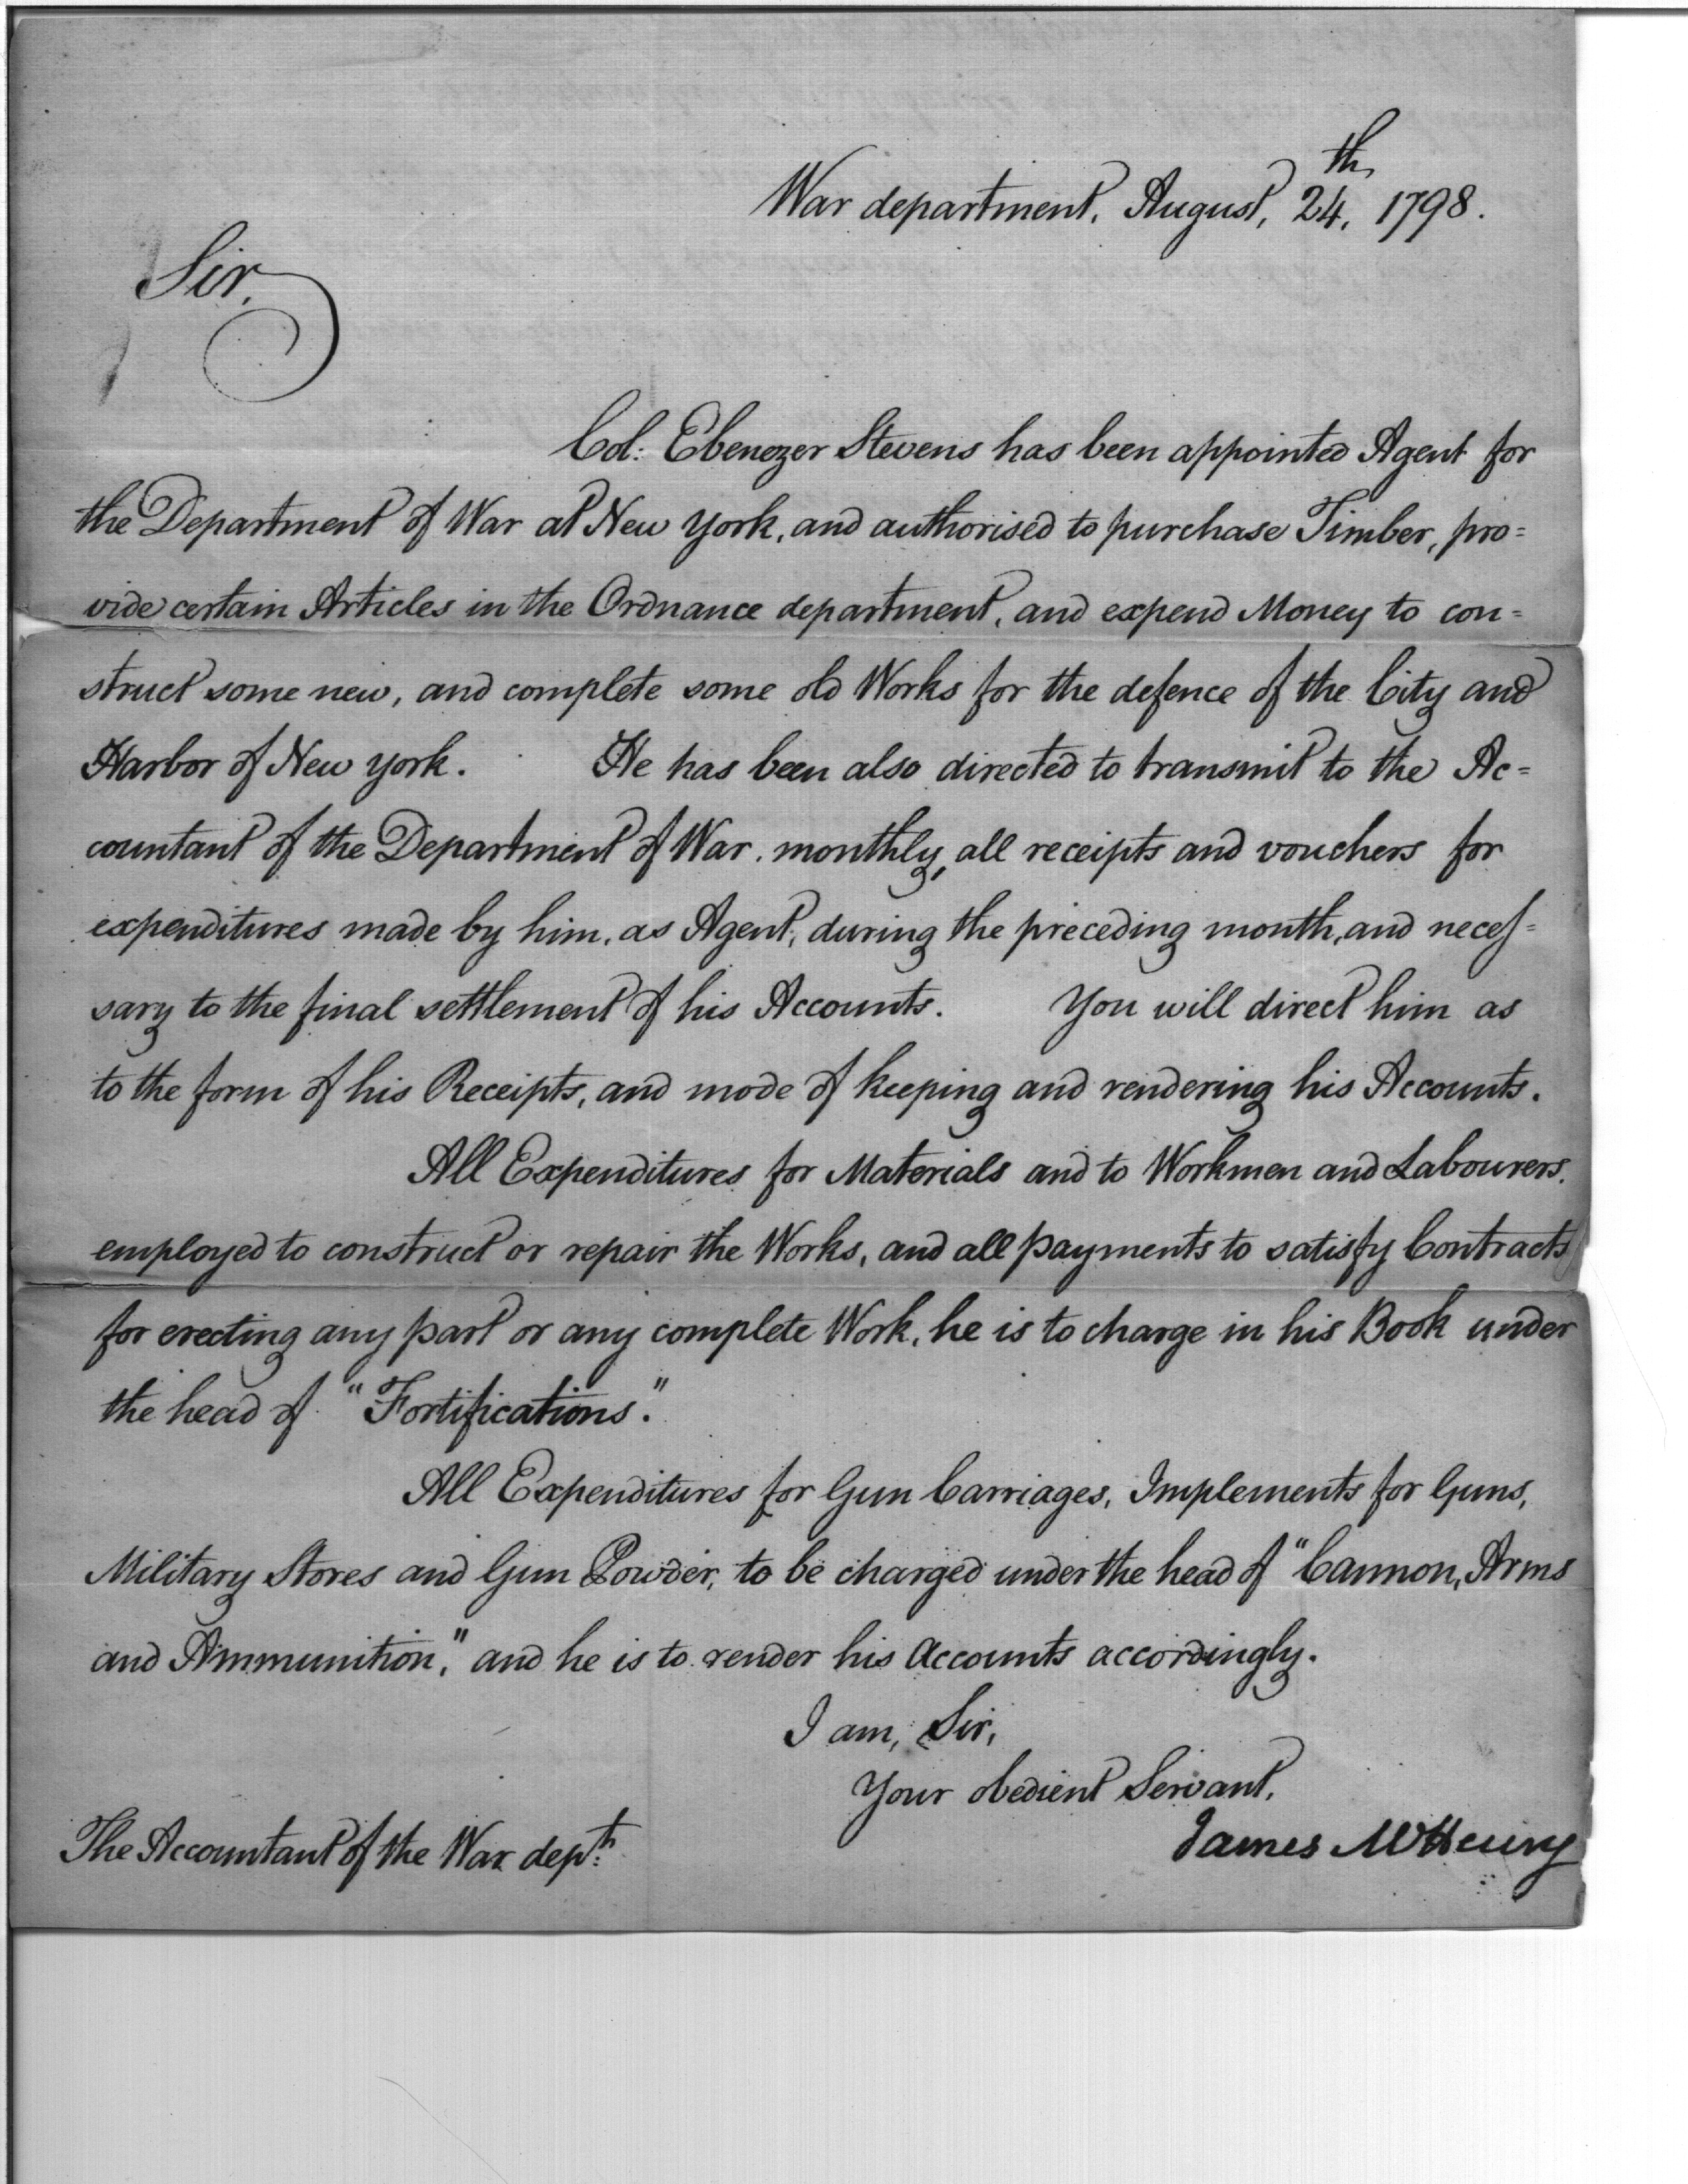 War department, August, 24th, 1798.
Sir,
Col: Ebenezer Stevens has been appointed Agent for
the Department of War at New York, and authorised to purchase Timber, pro=
vide certain Articles in the Ordnance department, and expend Money to con=
struct some new, and complete some old Works for the defence of the City and
Harbor of New York. He has been also directed to transmit to the Ac=
countant of the Department of War, monthly, all receipts and vouchers for
expenditures made by him, as Agent, during the preceding month, and necef=
sary to the final settlement of his Accounts. You will direct him as
to the form of his Receipts, and mode of keeping and rendering his Accounts.
All Expenditures for Materials and to Workmen and Labourers,
employed to construct or repair the Works, and all payments to satisfy Contracts
for erecting any part or any complete Work, he is to charge in his Book under
the head of "Fortifications."
All Expenditures for Gun Carriages, Implements for Guns,
Military Stores and Gun Powder, to be charged under the head of "Cannon, Arms
and Ammunition," and he is to render his Accounts accordingly.
I am, Sir,
Your obedient Servant,
James McHenry
The Accountant of the War dept: